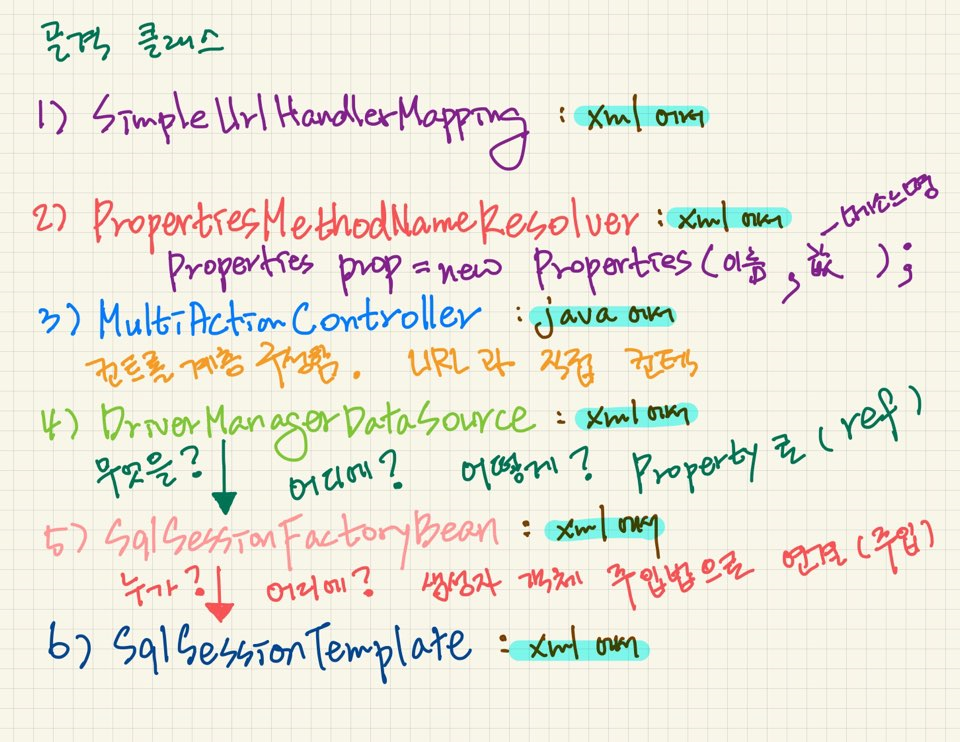 골격 클래스
1) SimpleUrlHandlerMapping : xml 에서
2) PropertiesMethodNameResolver : xml 에서
메소드명
Properties prop = new Properties(이름, 값 );
3) MultiActionController : java 에서
컨트롤 계층 구성함. URL과 직접 컨텍
4) DriverManagerDataSource : xml 에서
무엇을? 어디에? 어떻게? Property로(ref)
5) SqlSessionFactoryBean : xml 에서
누가? 어디에? 생성자 객체 주입법으로 연결(주입)
6) SqlSessionTemplate : xml 에서